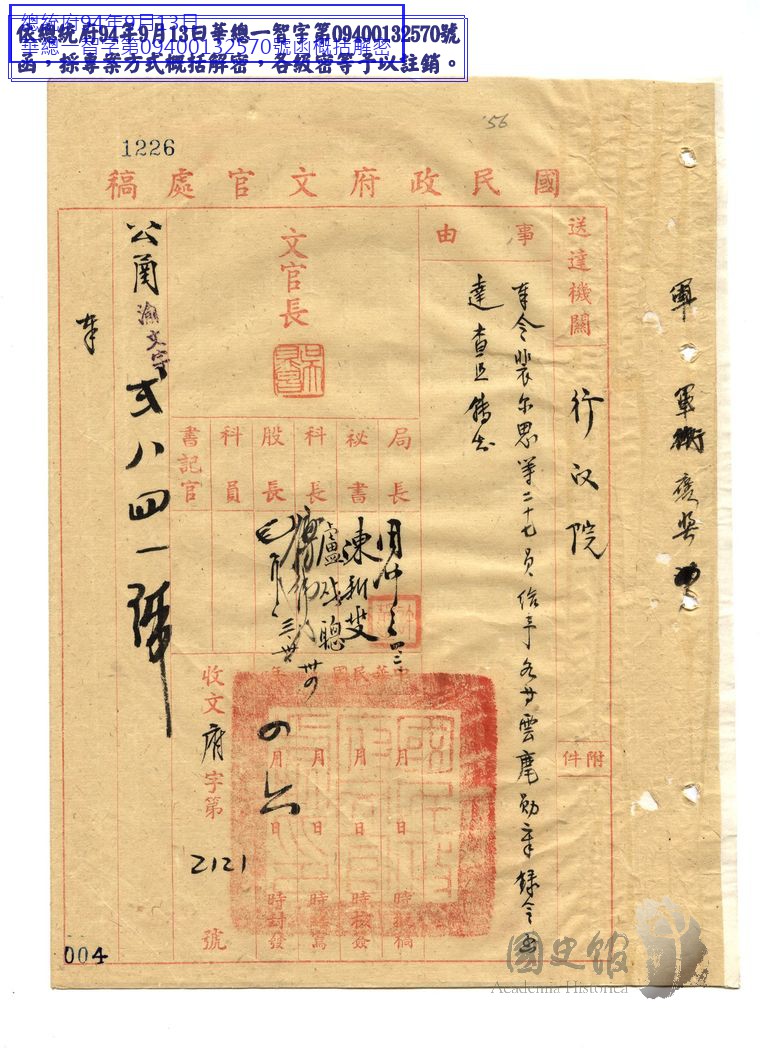 總統府94年9月13日
華總一智字第09400132570號函概括解密
依總統府94年9月13日華總一智字第09400132570號
函，採專案方式概括解密，各級密等予以註銷。
'56
1226
國民政府文官處稿
軍
送達機關
行政院
附件
事由
奉令裴尔思等二十七員給予各種雲麾勛章錄令函
達查照轉知
文官長
局長
秘書
科長
股長
科員
書記官
陳新燮
中華民國 年
月 日 時 稿
月 日 時核簽
月 日 時 寫
月 日 時封發
收文府字第
2121
號
公函渝文字
弍八四一號
奉
004
國史館
Academia Historica